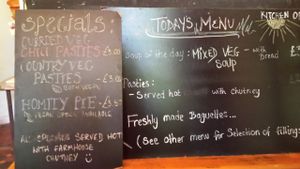 Specials:
CURRIED VEG
CHILLI PASTIES -£3.00
COUNTRY VEG
PASTIES
BOTH VEGAN
HOMITY PIE -£3.50
VEGAN OPTION AVAILABLE
ALL SPECIALS SERVED HOT
WITH FARMHOUSE
CHUTNEY
TODAYS MENU
KITCHEN O
Soup of the day: MIXED VEG - with
Soup bread
Pasties:
- Served hot with chutney
Freshly made Baguettes...
(See other menu for Selection of fillings